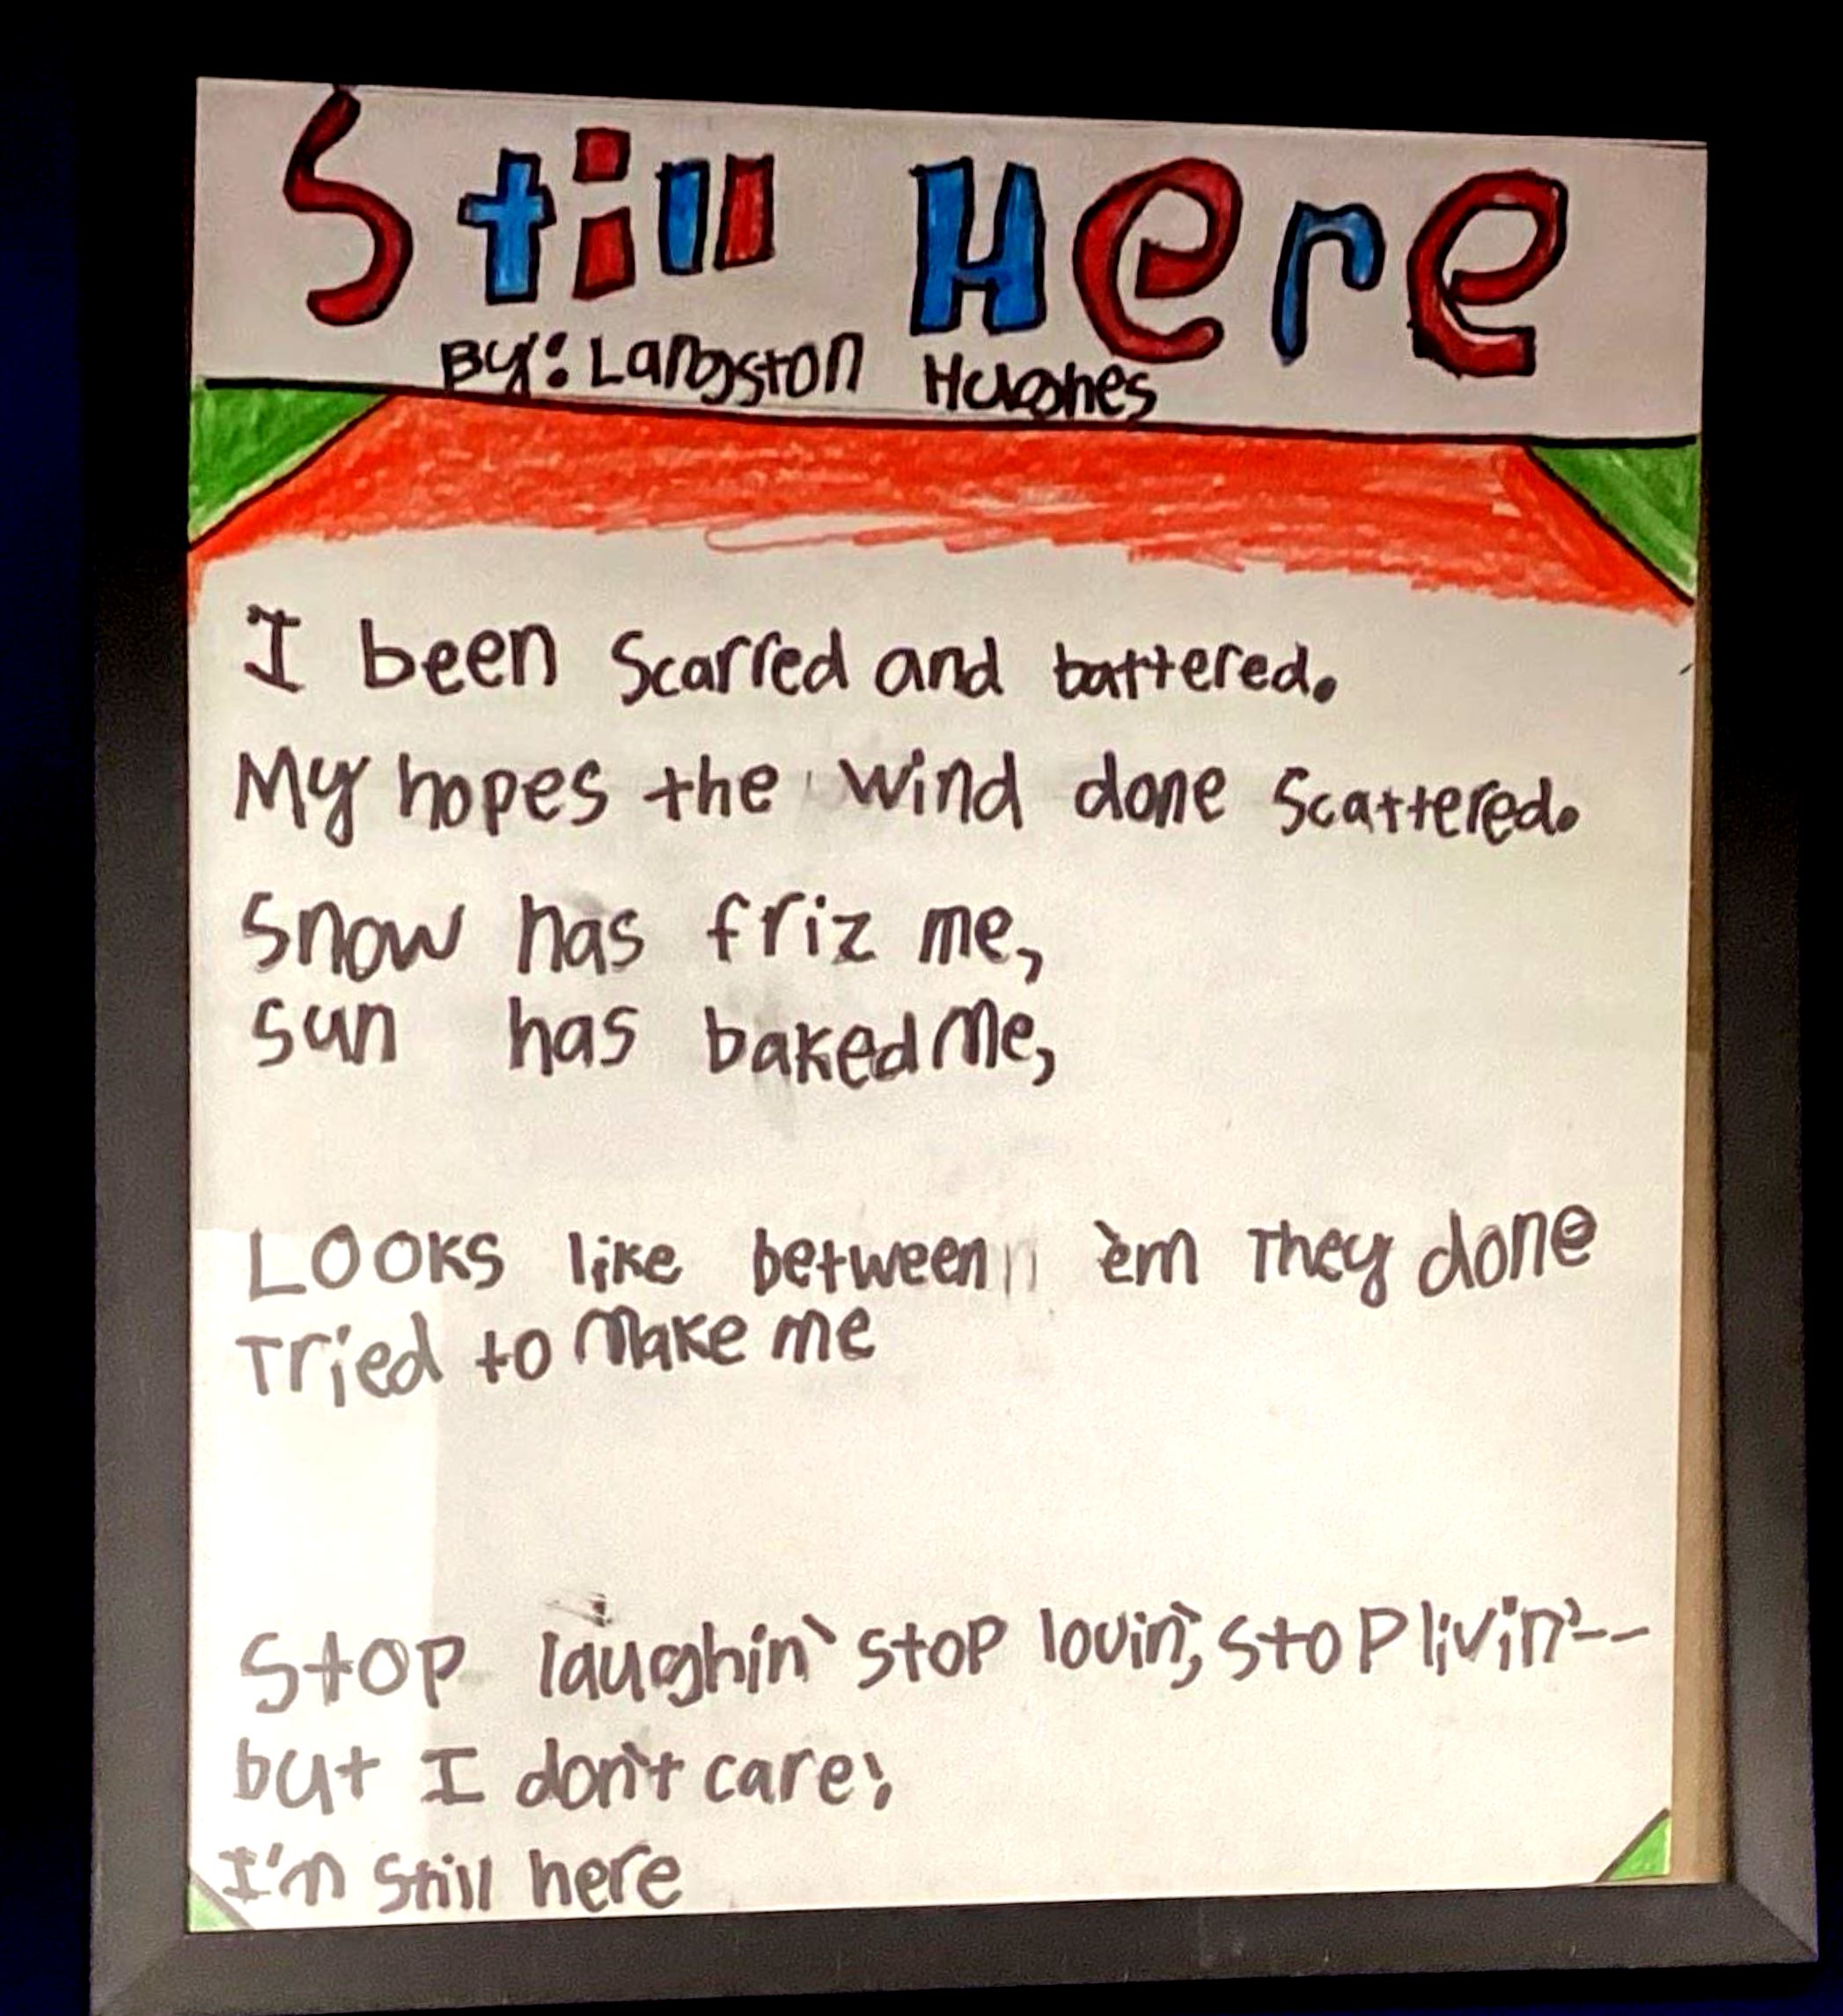 Still Here
By: Langston Hughes
I been Scarred and battered.
My hopes the wind done Scattered.
Snow has friz me,
Sun has baked Me,
LOOKS like between 'em They done
Tried to Make me
Stop laughin' stop lovin', stop livin'--
but I don't care;
I'm Still here